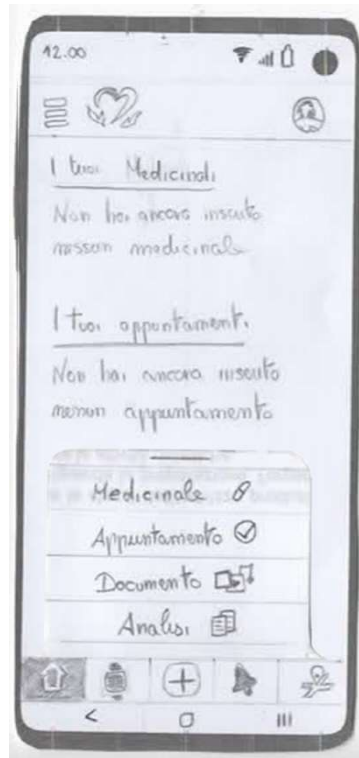 12.00
I tuoi Medicinali
Non hai ancora inserito
nessun medicinale
I tuoi appuntamenti
Non hai ancora inserito
nessun appuntamento
Medicinale
Appuntamento
Documento
Analisi